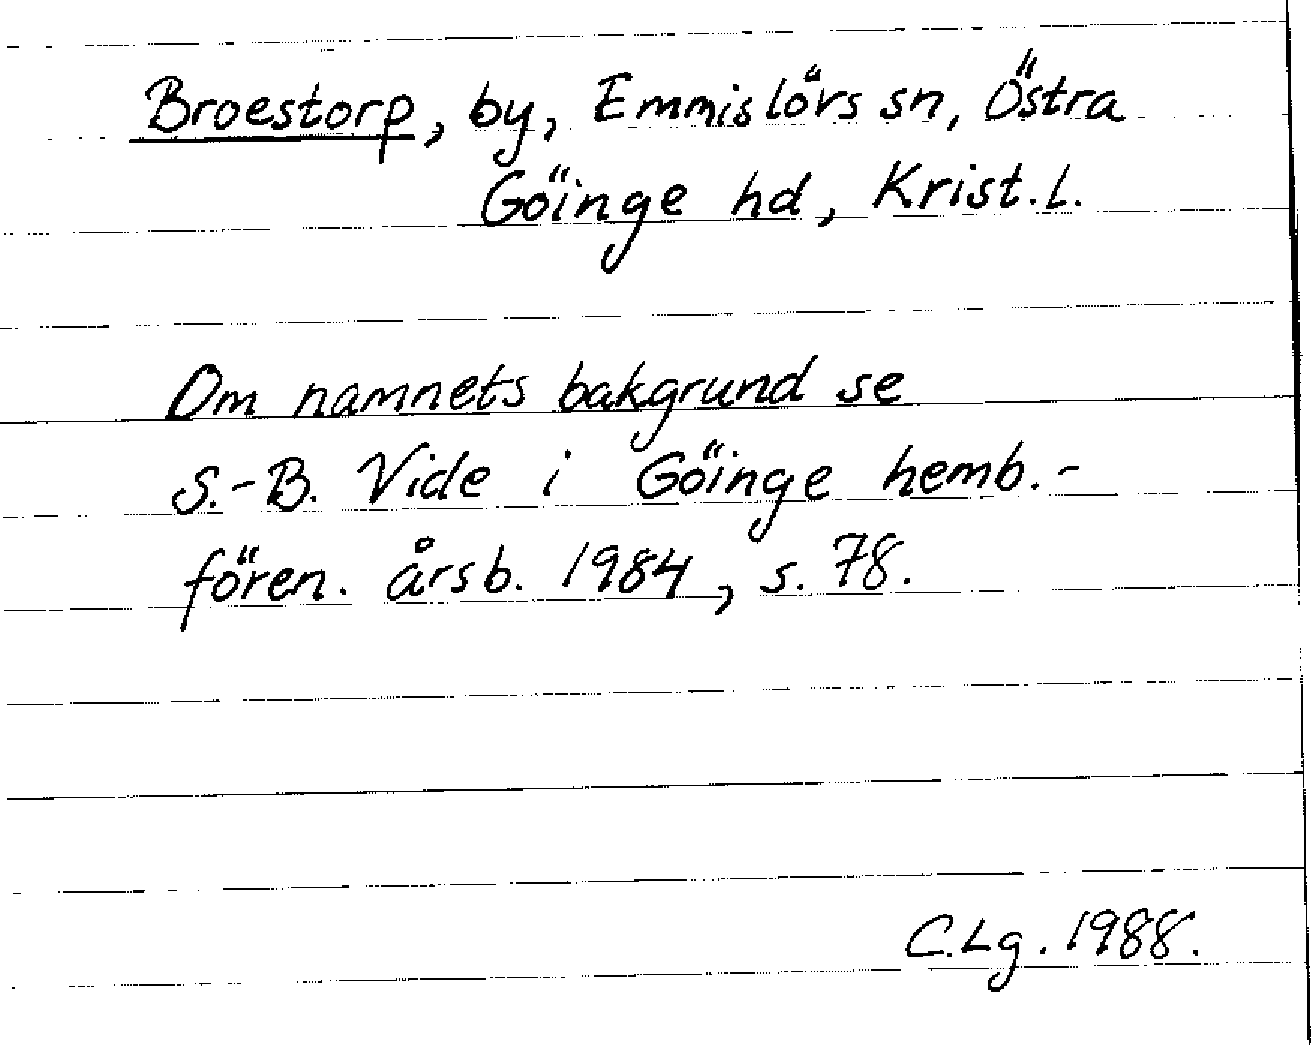 Broestorp, by, Emmislövs sn, Östra
Göinge hd, Krist. l.
Om namnets bakgrund se
S.-B. Vide i Göinge hemb.-
fören. årsb. 1984, s. 78.
C.Lg. 1988.